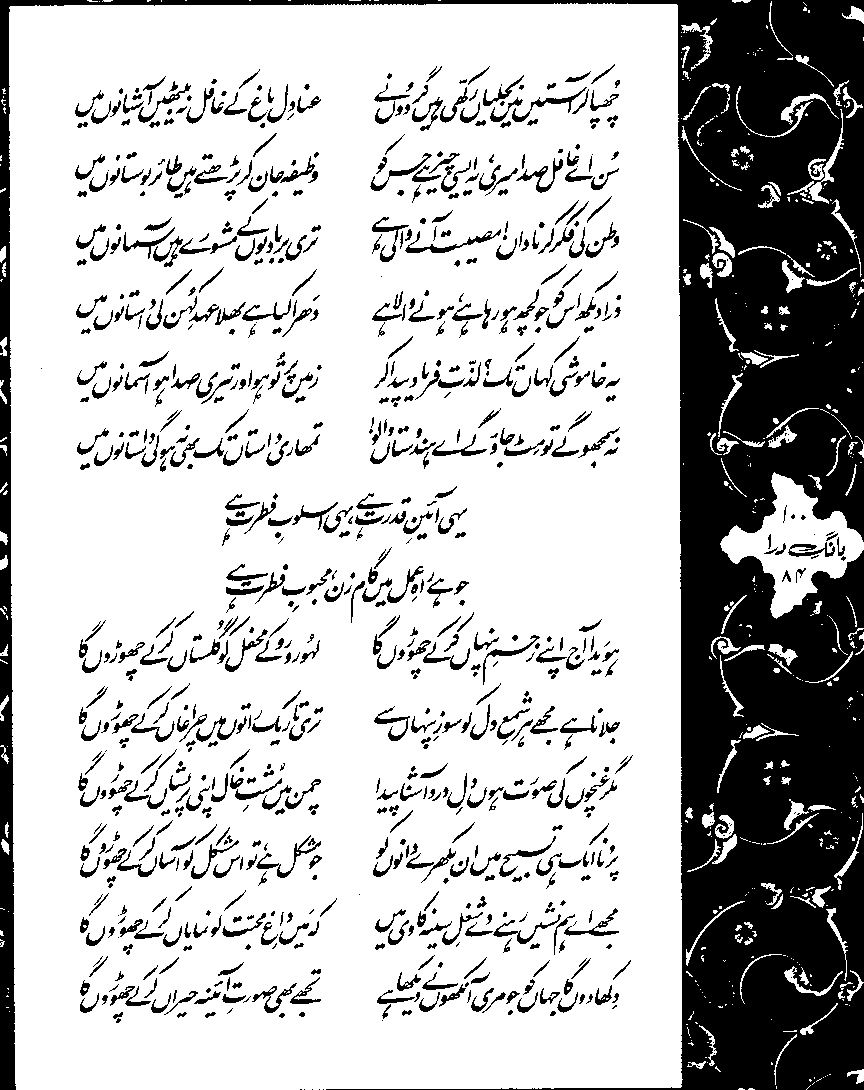 چھپا کر آستیں میں بجلیاں رکھی ہیں گردوں نے عنادل باغ کے غافل نہ بیٹھیں آشیانوں میں
سُن اے غافل صدا میری، یہ ایسی چیز ہے جس کو وظیفہ جان کر پڑھتے ہیں طائر بوستانوں میں
وطن کی فکر کر ناداں! مصیبت آنے والی ہے تری بربادیوں کے مشورے ہیں آسمانوں میں
ذرا دیکھ اس کو جو کچھ ہو رہا ہے، ہونے والا ہے دَھرا کیا ہے بھلا عہدِ کُہن کی داستانوں میں
یہ خاموشی کہاں تک؟ لذّتِ فریاد پیدا کر زمیں پر تُو ہو اور تیری صدا ہو آسمانوں میں
نہ سمجھو گے تو مٹ جاؤ گے اے ہندوستاں والو! تمھاری داستاں تک بھی نہ ہو گی داستانوں میں
یہی آئینِ قدرت ہے، یہی اسلوبِ فطرت ہے
جو ہے راہِ عمل میں گام زن، محبوبِ فطرت ہے
ہویدا آج اپنے زخمِ پنہاں کر کے چھوڑوں گا لہُو رو رو کے محفل کو گُلستاں کر کے چھوڑوں گا
جلانا ہے مجھے ہر شمعِ دل کو سوزِ پنہاں سے تری تاریک راتوں میں چراغاں کر کے چھوڑوں گا
مگر غنچوں کی صورت ہوں دلِ درد آشنا پیدا چمن میں مُشتِ خاک اپنی پریشاں کر کے چھوڑوں گا
پرونا ایک ہی تسبیح میں ان بکھرے دانوں کو جو مشکل ہے، تو اس مشکل کو آساں کر کے چھوڑوں گا
مجھے اے ہم نشیں رہنے دے شغلِ سینہ کاوی میں کہ مَیں داغِ محبت کو نمایاں کر کے چھوڑوں گا
دِکھا دوں گا جہاں کو جو مری آنکھوں نے دیکھا ہے تجھے بھی صورتِ آئینہ حیراں کر کے چھوڑوں گا
۱۰۰
بانگِ درا
۸۴